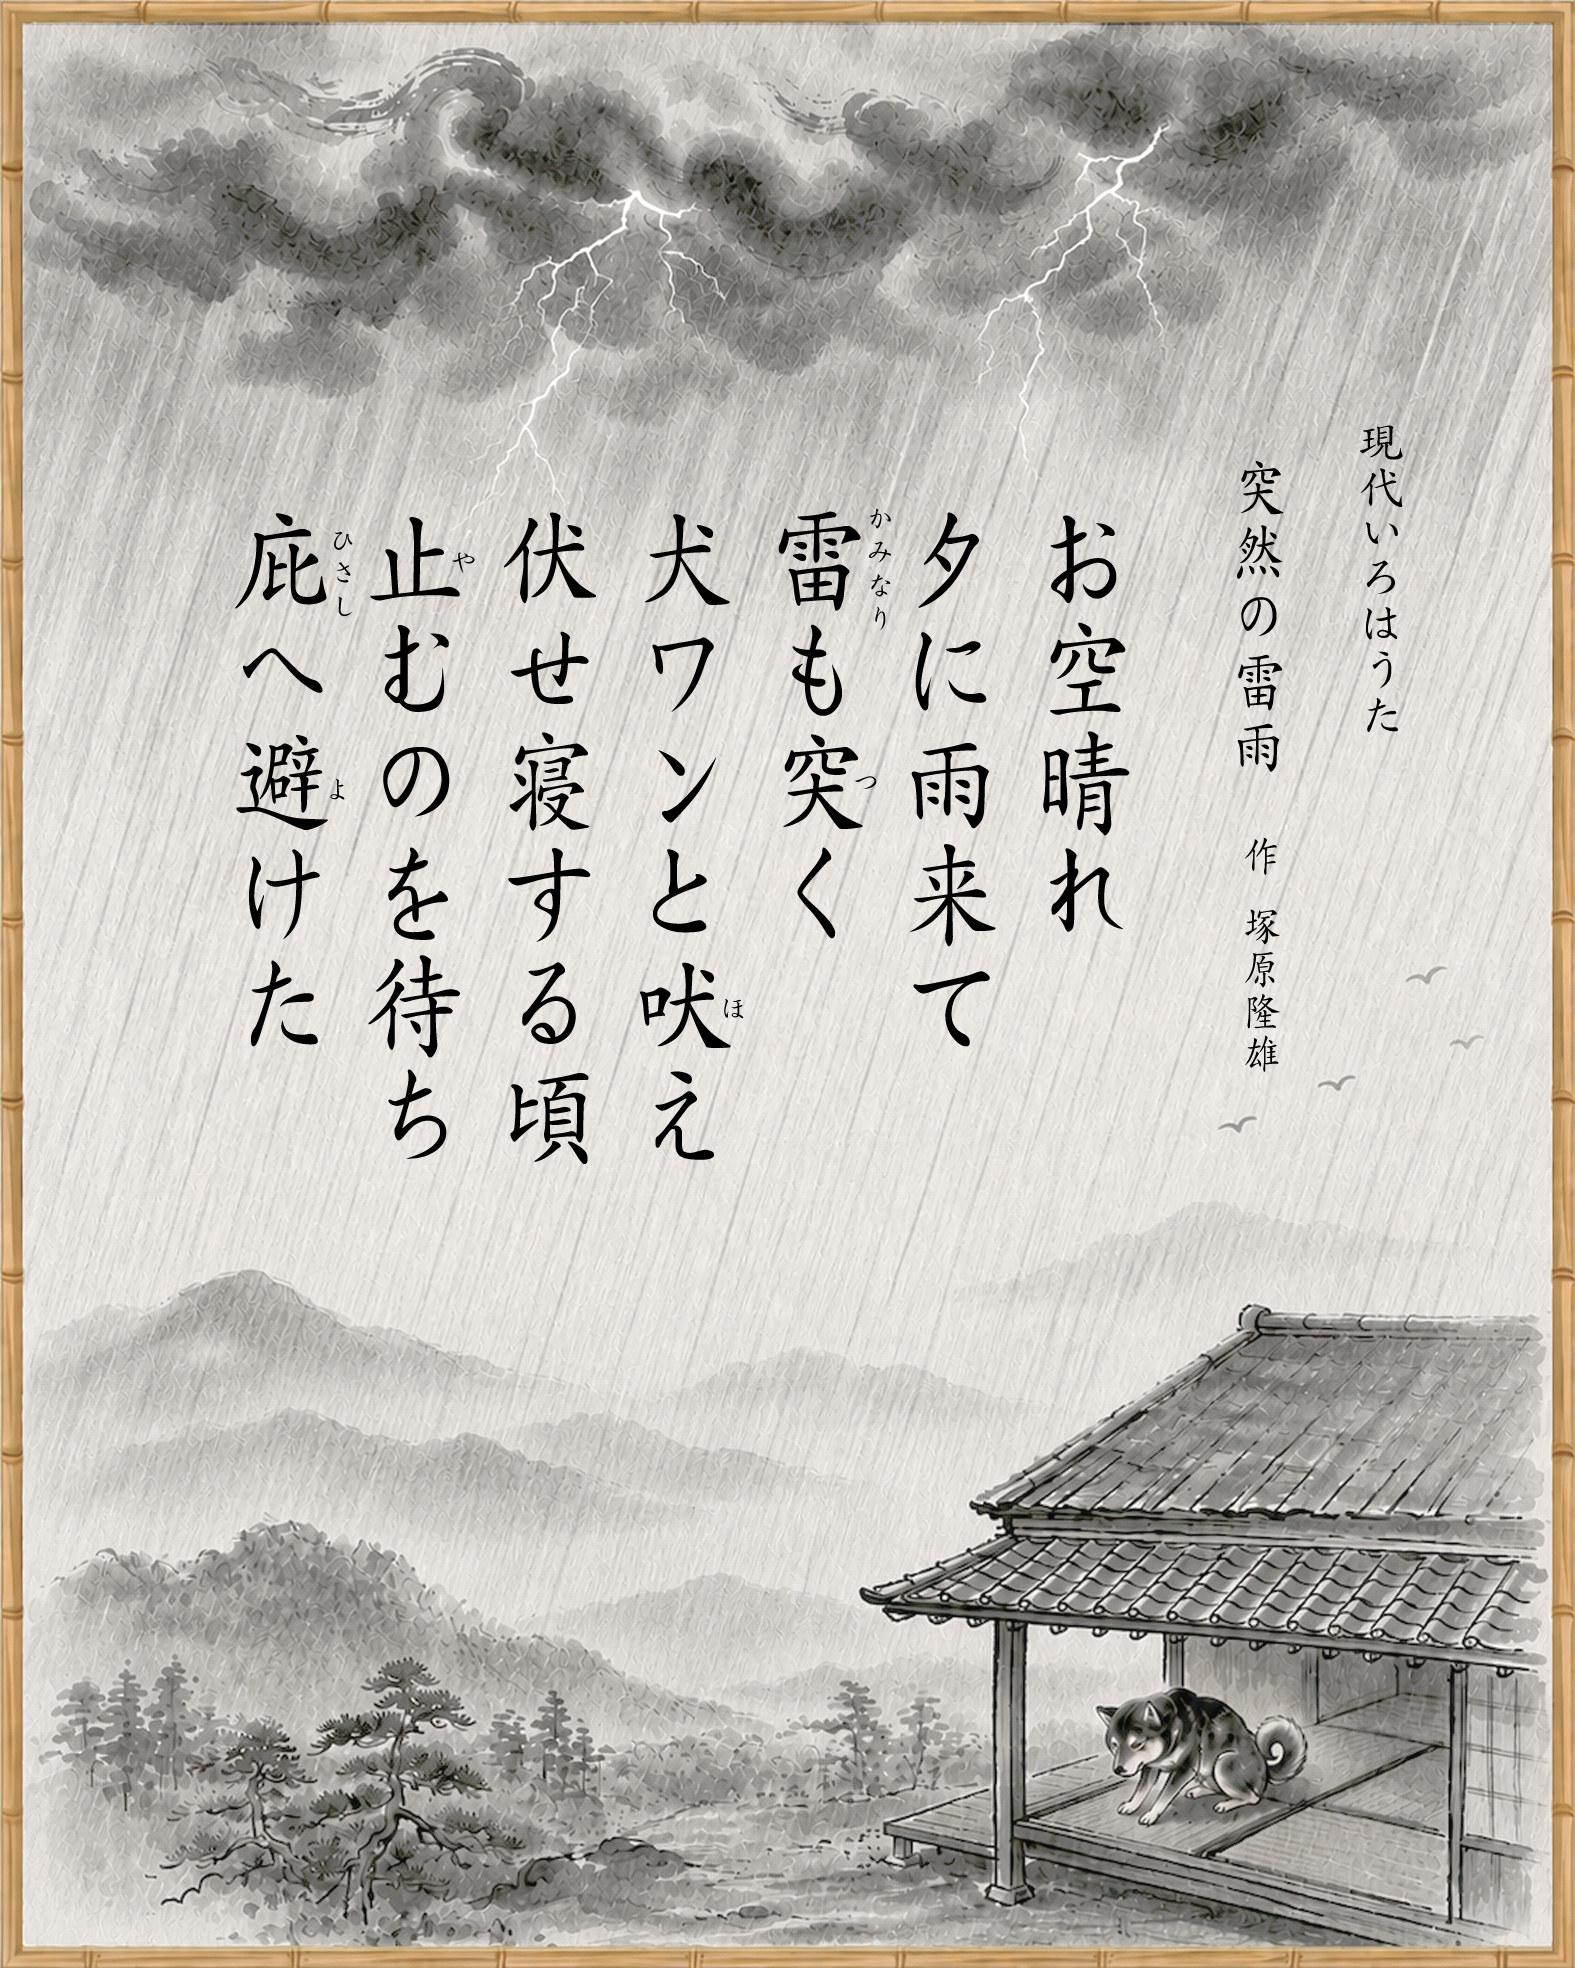 現代いろはうた
突然の雷雨 作 塚原隆雄
お空晴れ
夕に雨来て
雷も突く
かみなり
つ
犬ワンと吠え
ほ
伏せ寝する頃
止むのを待ち
や
庇へ避けた
ひさし
よ